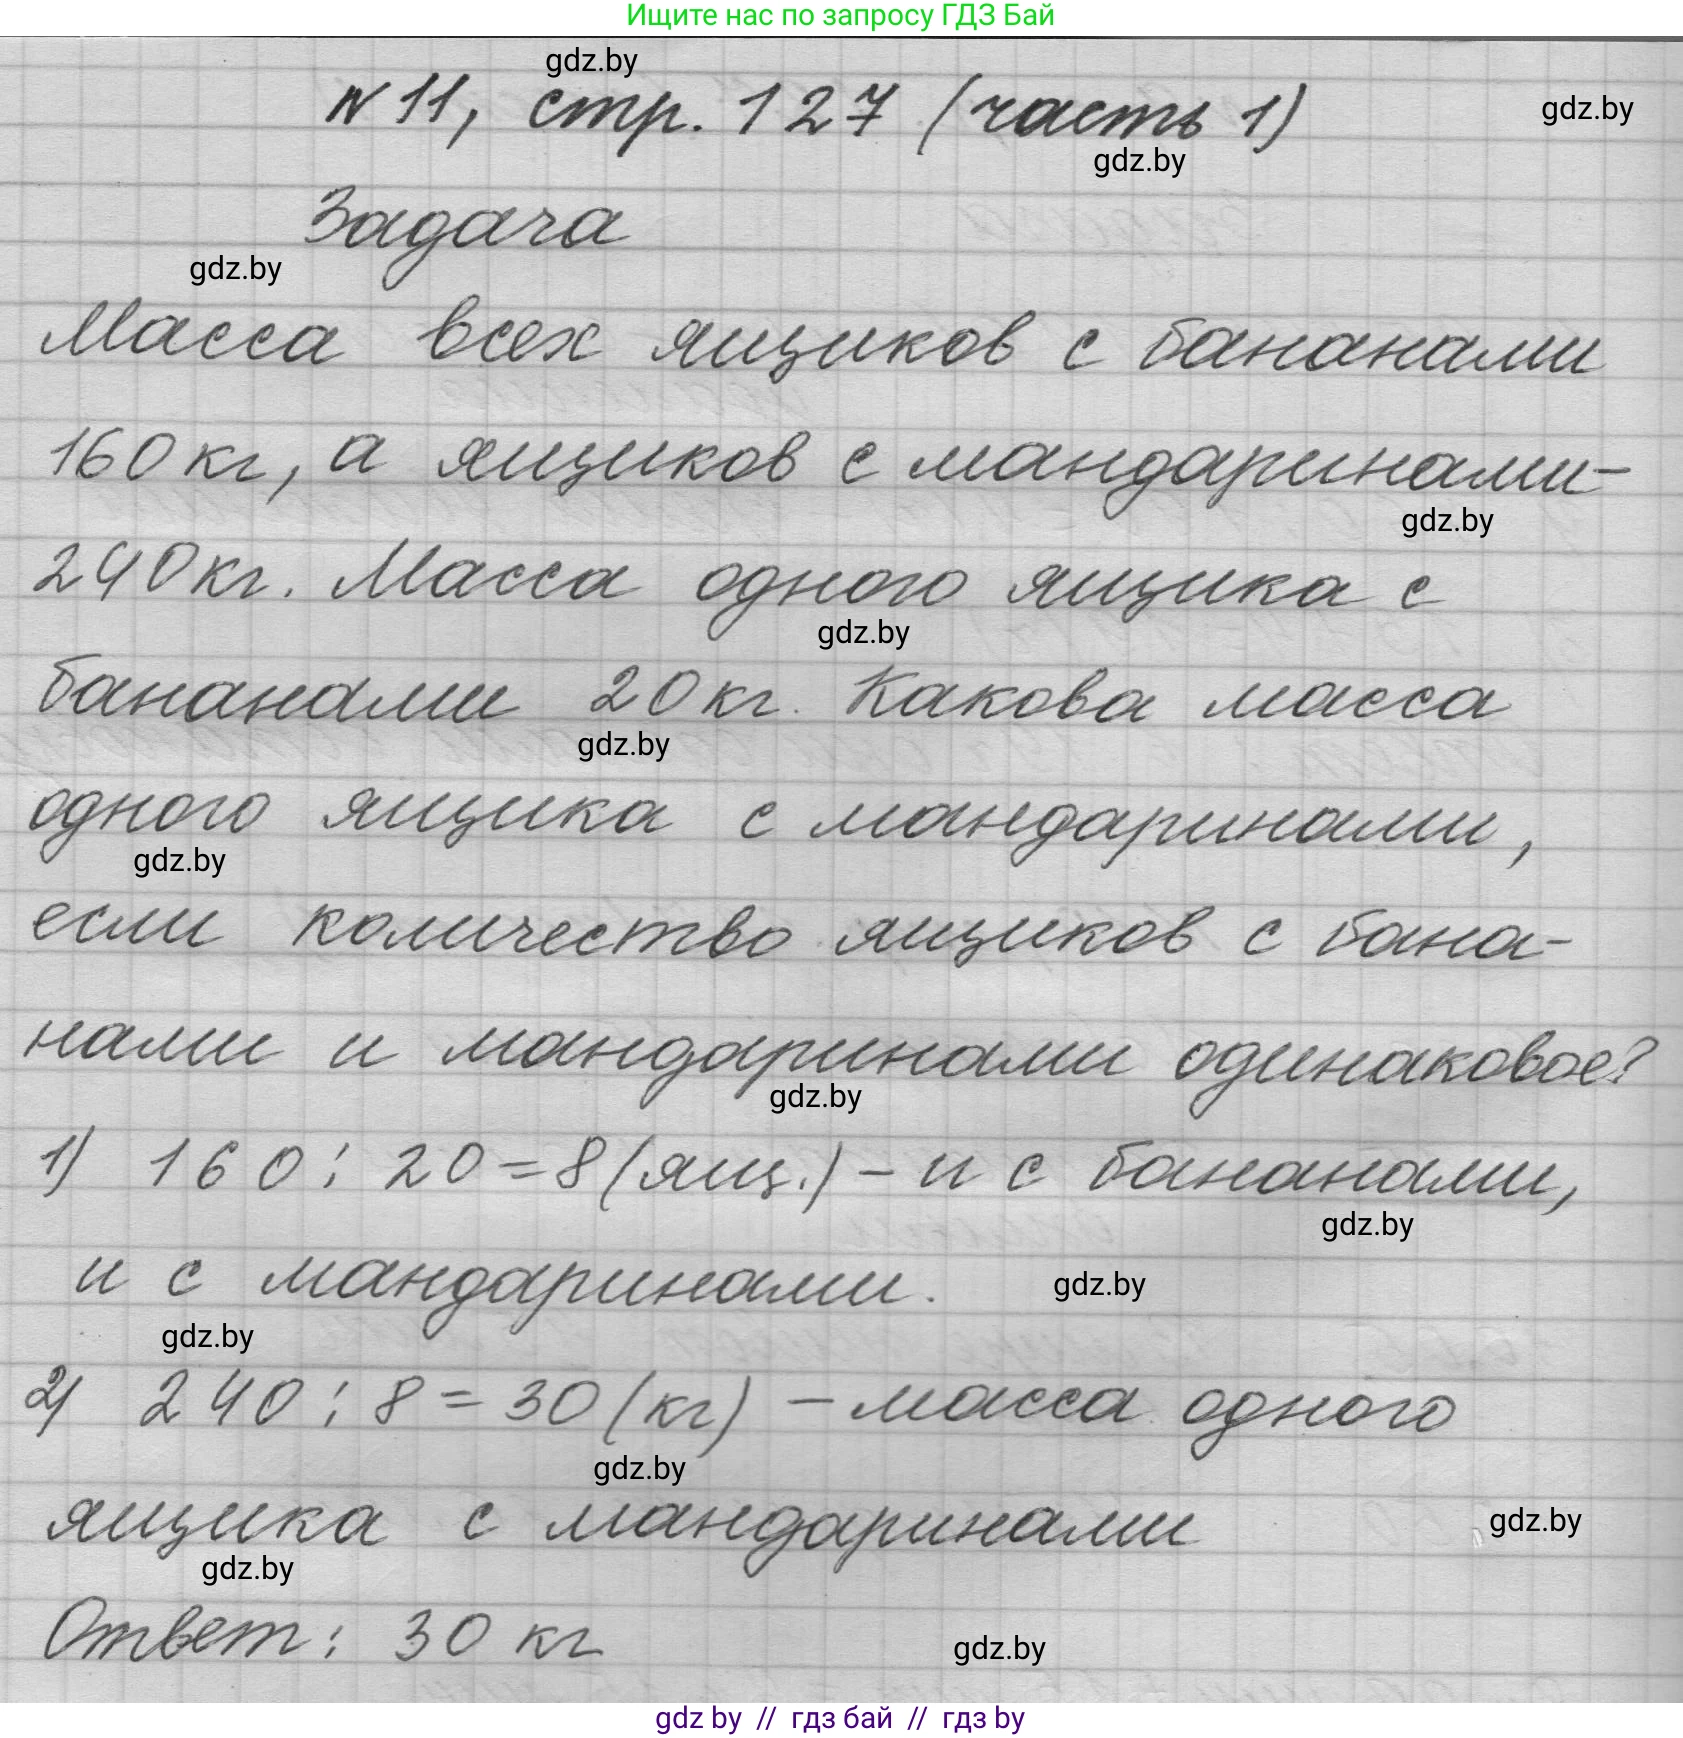 Ищите нас по запросу ГДЗ Бай
gdz.by
№ 11, стр. 127 (часть 1)
gdz.by
gdz.by
Задача
gdz.by
Масса всех ящиков с бананами
160 кг, а ящиков с мандаринами-
gdz.by
240 кг. Масса одного ящика с
gdz.by
бананами 20 кг. Какова масса
gdz.by
одного ящика с мандаринами,
gdz.by
если количество ящиков с бана-
нами и мандаринами одинаковое?
gdz.by
1) 160 : 20 = 8 (ящ.) – и с бананами,
gdz.by
и с мандаринами.
gdz.by
gdz.by
2) 240 : 8 = 30 (кг) – масса одного
gdz.by
ящика с мандаринами
gdz.by
gdz.by
Ответ: 30 кг
gdz.by
gdz by // гдз бай // гдз by